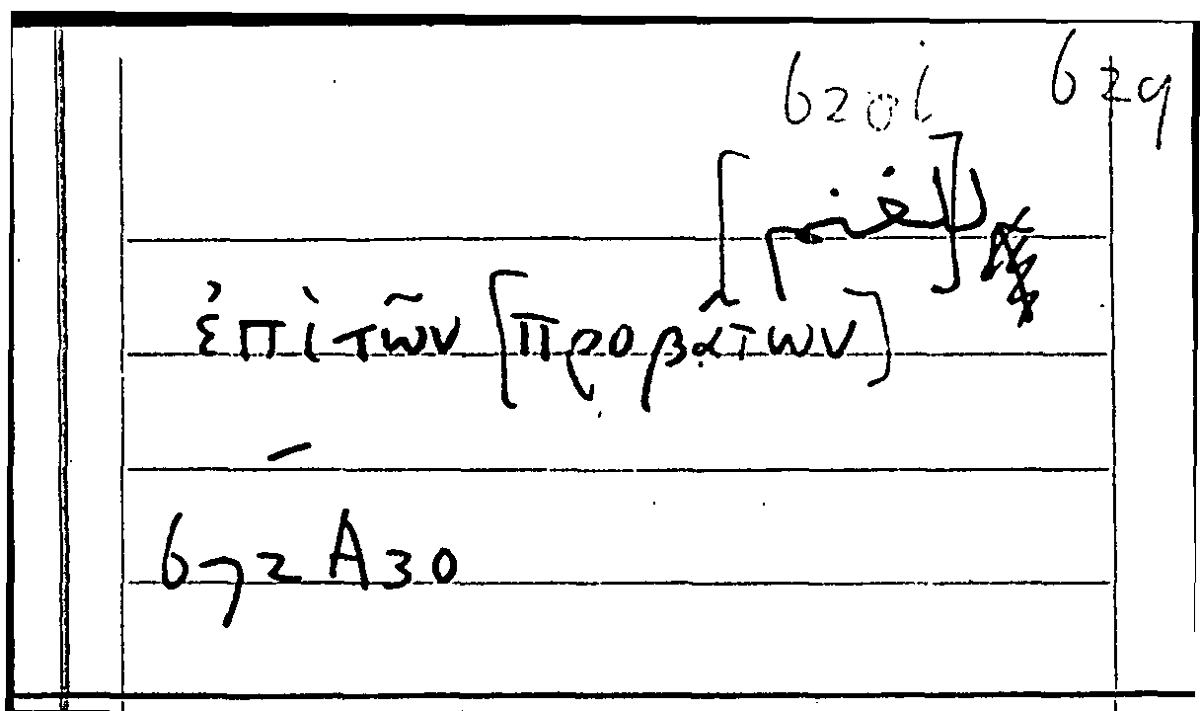 620i 629
[للغنم]
ἐπὶ τῶν [προβάτων]
–
672 A30